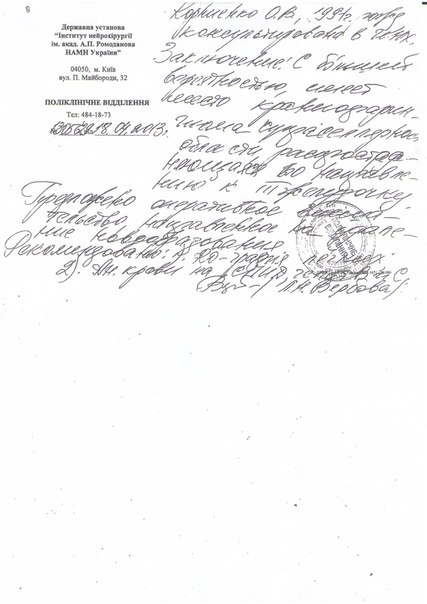 Державна установа
"Інститут нейрохірургії
ім. акад. А.П. Ромоданова
НАМН України"
04050, м. Київ
вул. П. Майбороди, 32
ПОЛІКЛІНІЧНЕ ВІДДІЛЕННЯ
Тел: 484-18-73
18.04.2013.
Корниенко О.В., 1991г.
консультирована в
Заключение: С большей
вероятностью, имеет
место краниофарин-
гиома супраселлярной
области, распростра-
няющаяся по направле-
нию к III желудочку.
Предложено оперативное вмеша-
тельство, направленное на удале-
ние новообразования.
Рекомендовано: 1.
2) Ан. крови на